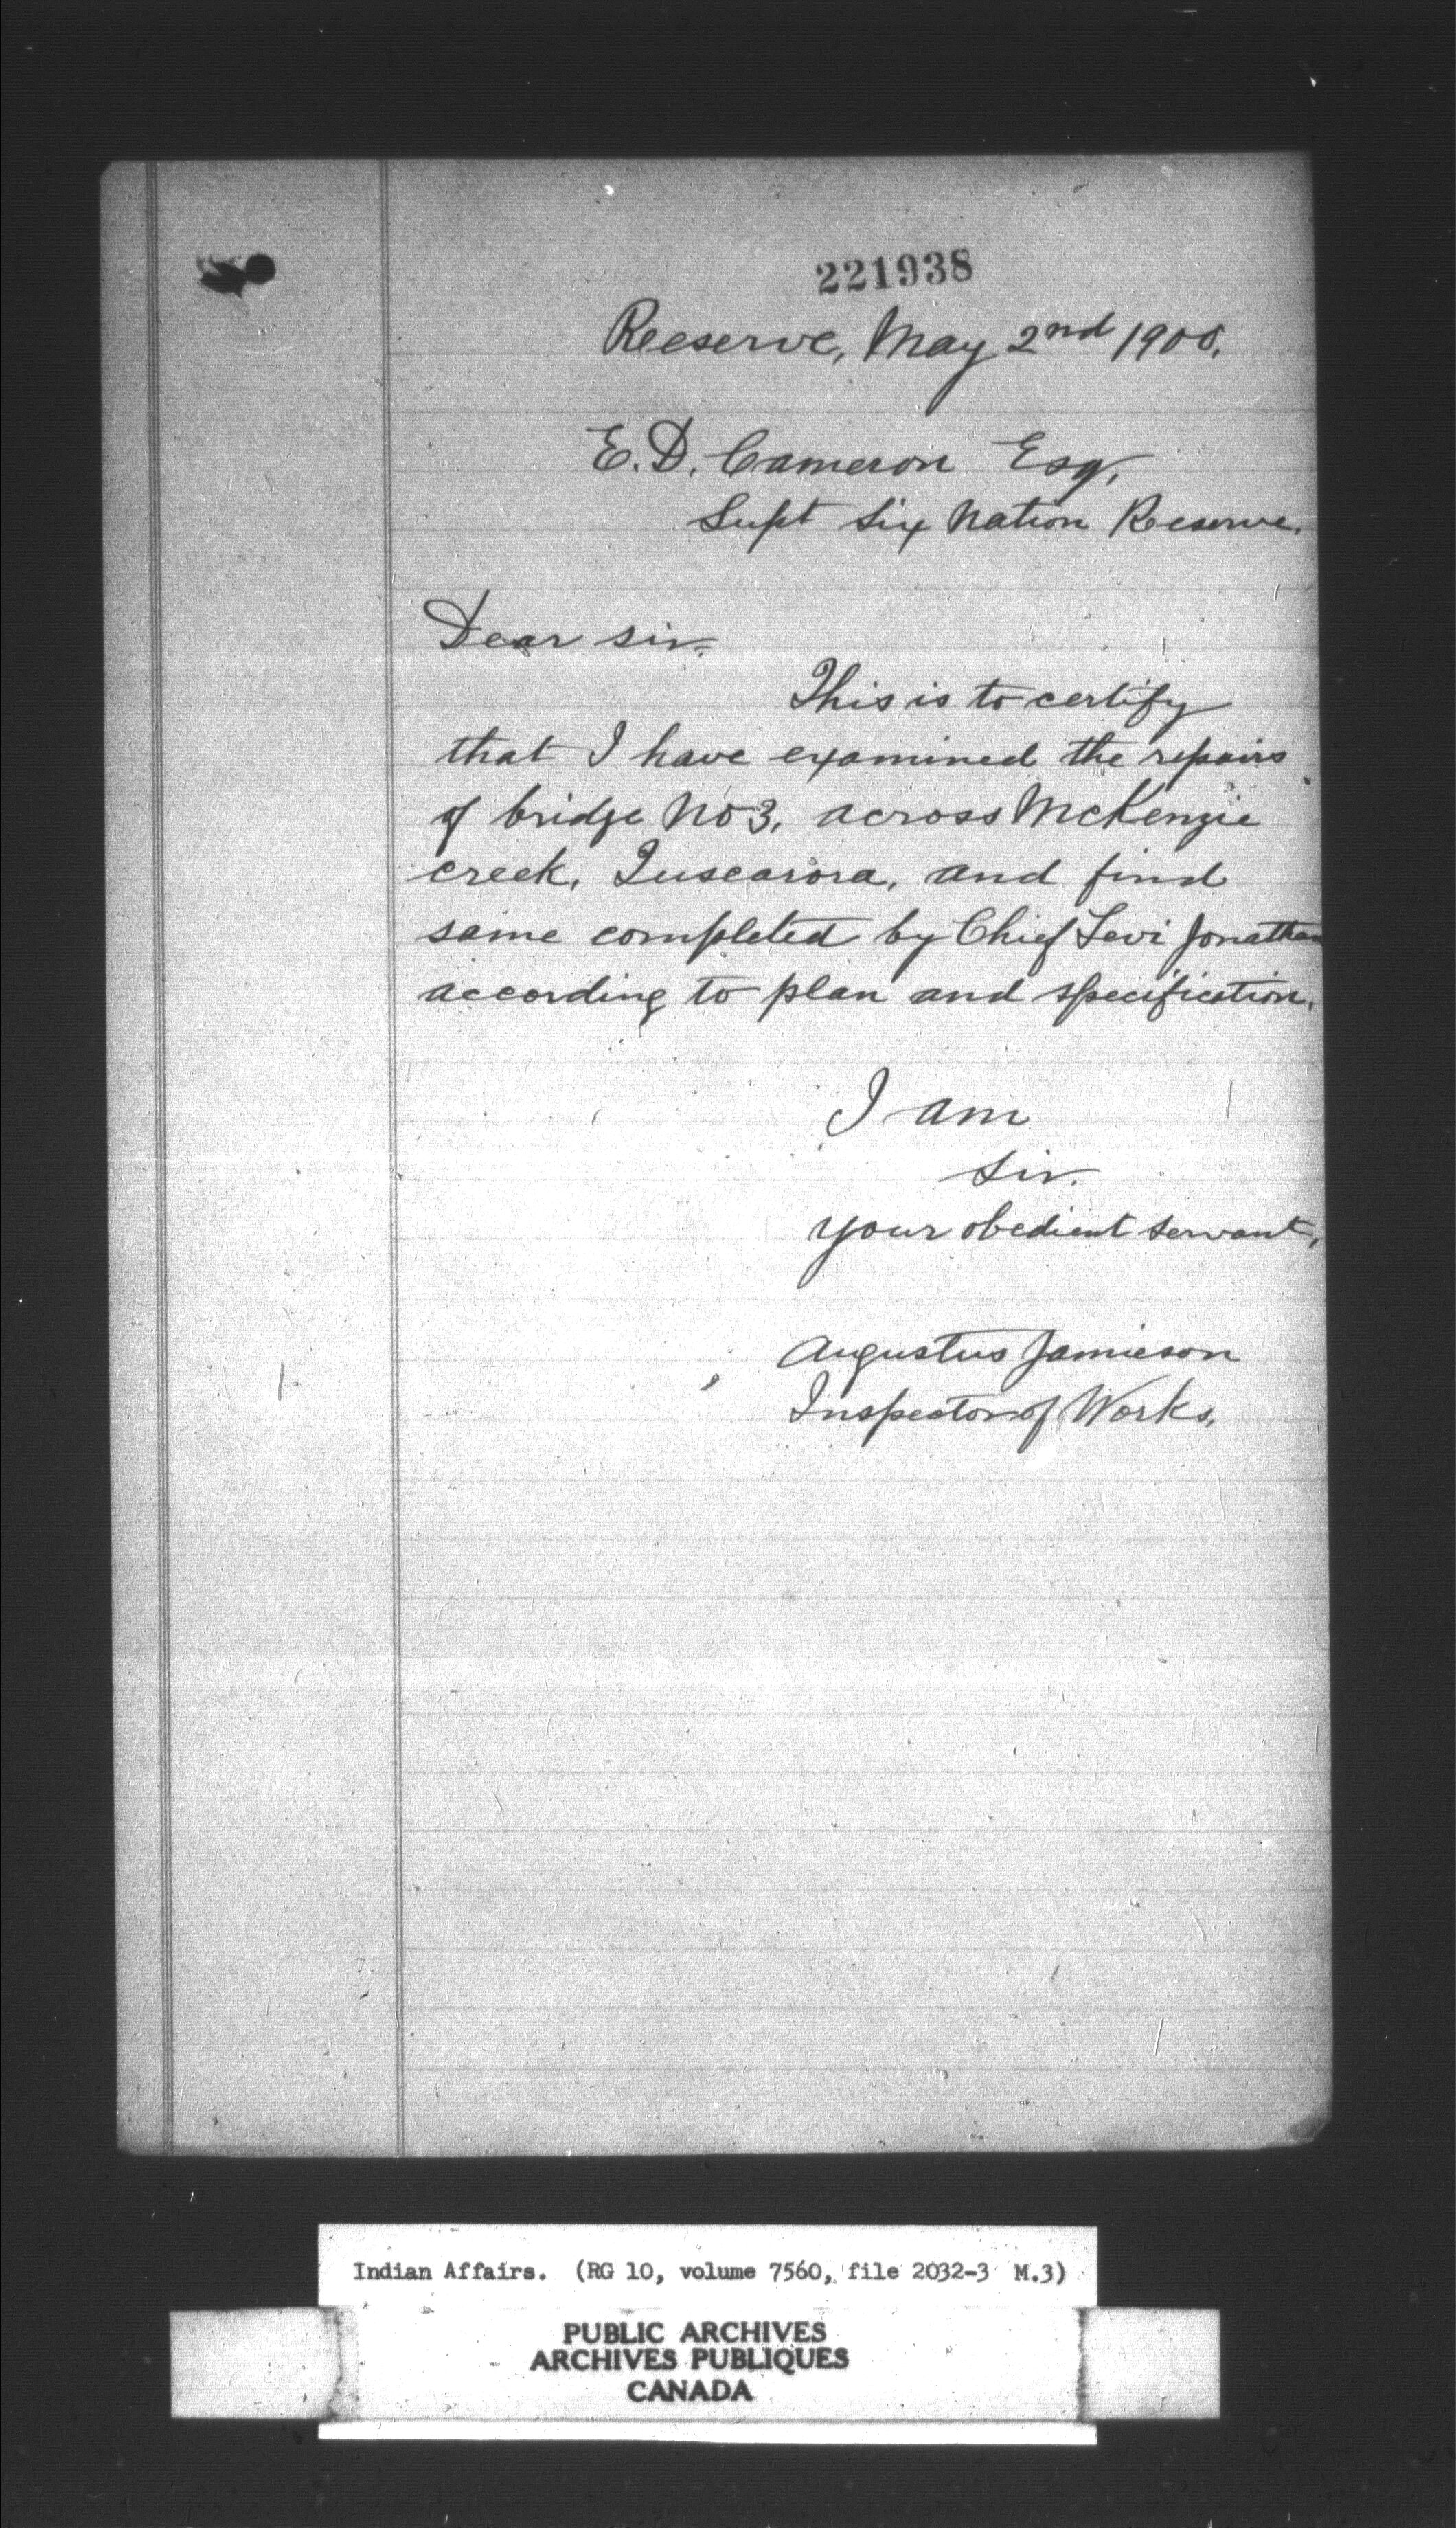 221938
Reeserve, May 2nd 1900.
E. D. Cameron Esq,
Supt Six Nation Reeserve.
Dear sir.
This is to certify
that I have examined the repairs
of bridge No 3, across McKenzie
creek, Tuscarora, and find
same completed by Chief Levi Jonathan
according to plan and specification.
I am
Sir.
your obedient servant,
Augustus Jamieson
Inspector of Works,
Indian Affairs. (RG 10, volume 7560, file 2032-3 M.3)
PUBLIC ARCHIVES
ARCHIVES PUBLIQUES
CANADA